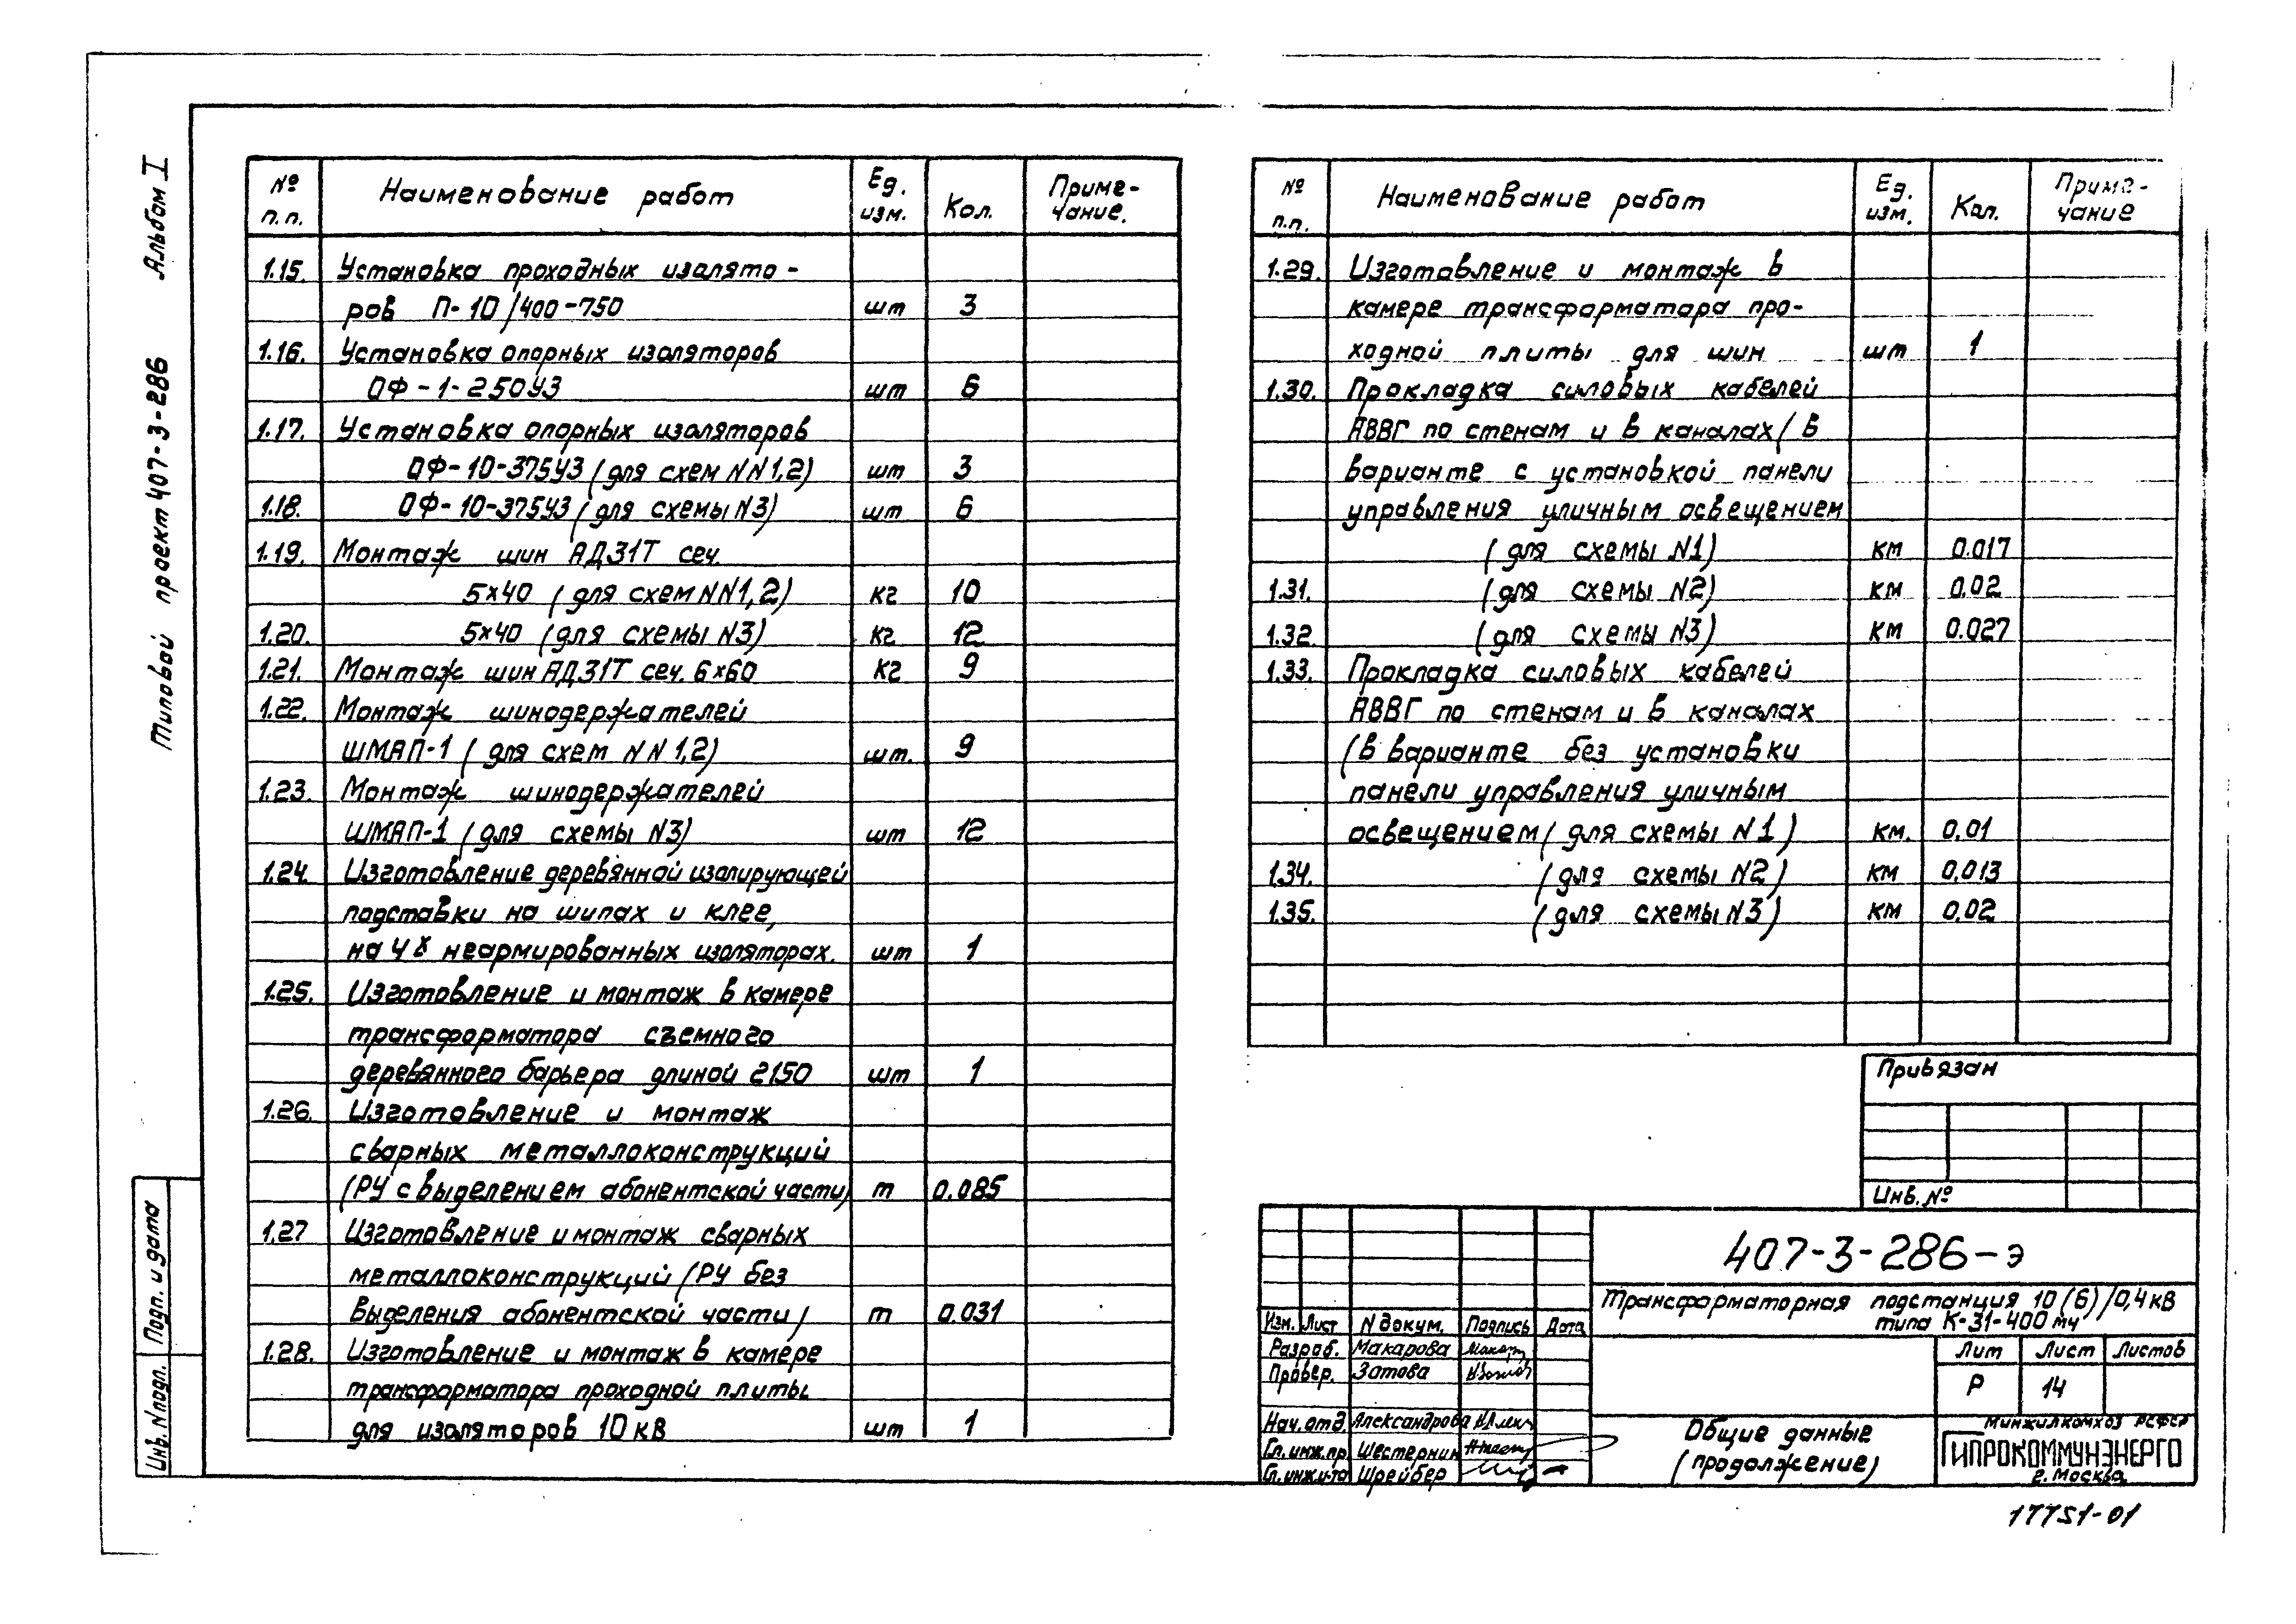 Типовой проект 407-3-286 Альбом I
№ п.п. Наименование работ Ед. изм. Кол. Приме- чание.
1.15. Установка проходных изолято-
ров П-10/400-750 шт 3
1.16. Установка опорных изоляторов
ОФ-1-250У3 шт 6
1.17. Установка опорных изоляторов
ОФ-10-375У3 (для схем NN1,2) шт 3
1.18. ОФ-10-375У3 (для схемы N3) шт 6
1.19. Монтаж шин АД31Т сеч.
5х40 (для схем NN1,2) кг 10
1.20. 5х40 (для схемы N3) кг 12
1.21. Монтаж шин АД31Т сеч. 6х60 кг 9
1.22. Монтаж шинодержателей
ШМАП-1 (для схем NN1,2) шт. 9
1.23. Монтаж шинодержателей
ШМАП-1 (для схемы N3) шт 12
1.24. Изготовление деревянной изолирующей
подставки на шипах и клее,
на 4х неармированных изоляторах. шт 1
1.25. Изготовление и монтаж в камере
трансформатора съемного
деревянного барьера длиной 2150 шт 1
1.26. Изготовление и монтаж
сварных металлоконструкций
(РУ с выделением абонентской части) т 0.085
1.27 Изготовление и монтаж сварных
металлоконструкций (РУ без
выделения абонентской части) т 0.031
1.28. Изготовление и монтаж в камере
трансформатора проходной плиты
для изоляторов 10 кв шт 1
№ п.п. Наименование работ Ед. изм. Кол. Приме- чание
1.29. Изготовление и монтаж в
камере трансформатора про-
ходной плиты для шин шт 1
1.30. Прокладка силовых кабелей
АВВГ по стенам и в каналах (в
варианте с установкой панели
управления уличным освещением
(для схемы N1) км 0.017
1.31. (для схемы N2) км 0.02
1.32. (для схемы N3) км 0.027
1.33. Прокладка силовых кабелей
АВВГ по стенам и в каналах
(в варианте без установки
панели управления уличным
освещением (для схемы N1) км. 0.01
1.34. (для схемы N2) км 0.013
1.35. (для схемы N3) км 0.02
Привязан
Инв. №
407-3-286-э
Трансформаторная подстанция 10(6)/0,4кв
типа К-31-400 м4
Изм. Лист N докум. Подпись Дата
Разраб. Макарова
Провер. Затова
Нач. отд. Александрова
Гл. инж. пр. Шестернин
Гл. инж. и-та Шрейбер
Лит Лист Листов
Р 14
Общие данные
(продолжение)
Минжилкомхоз РСФСР
ГИПРОКОММУНЭНЕРГО
г. Москва
Инв. N подл. Подп. и дата
17751-01